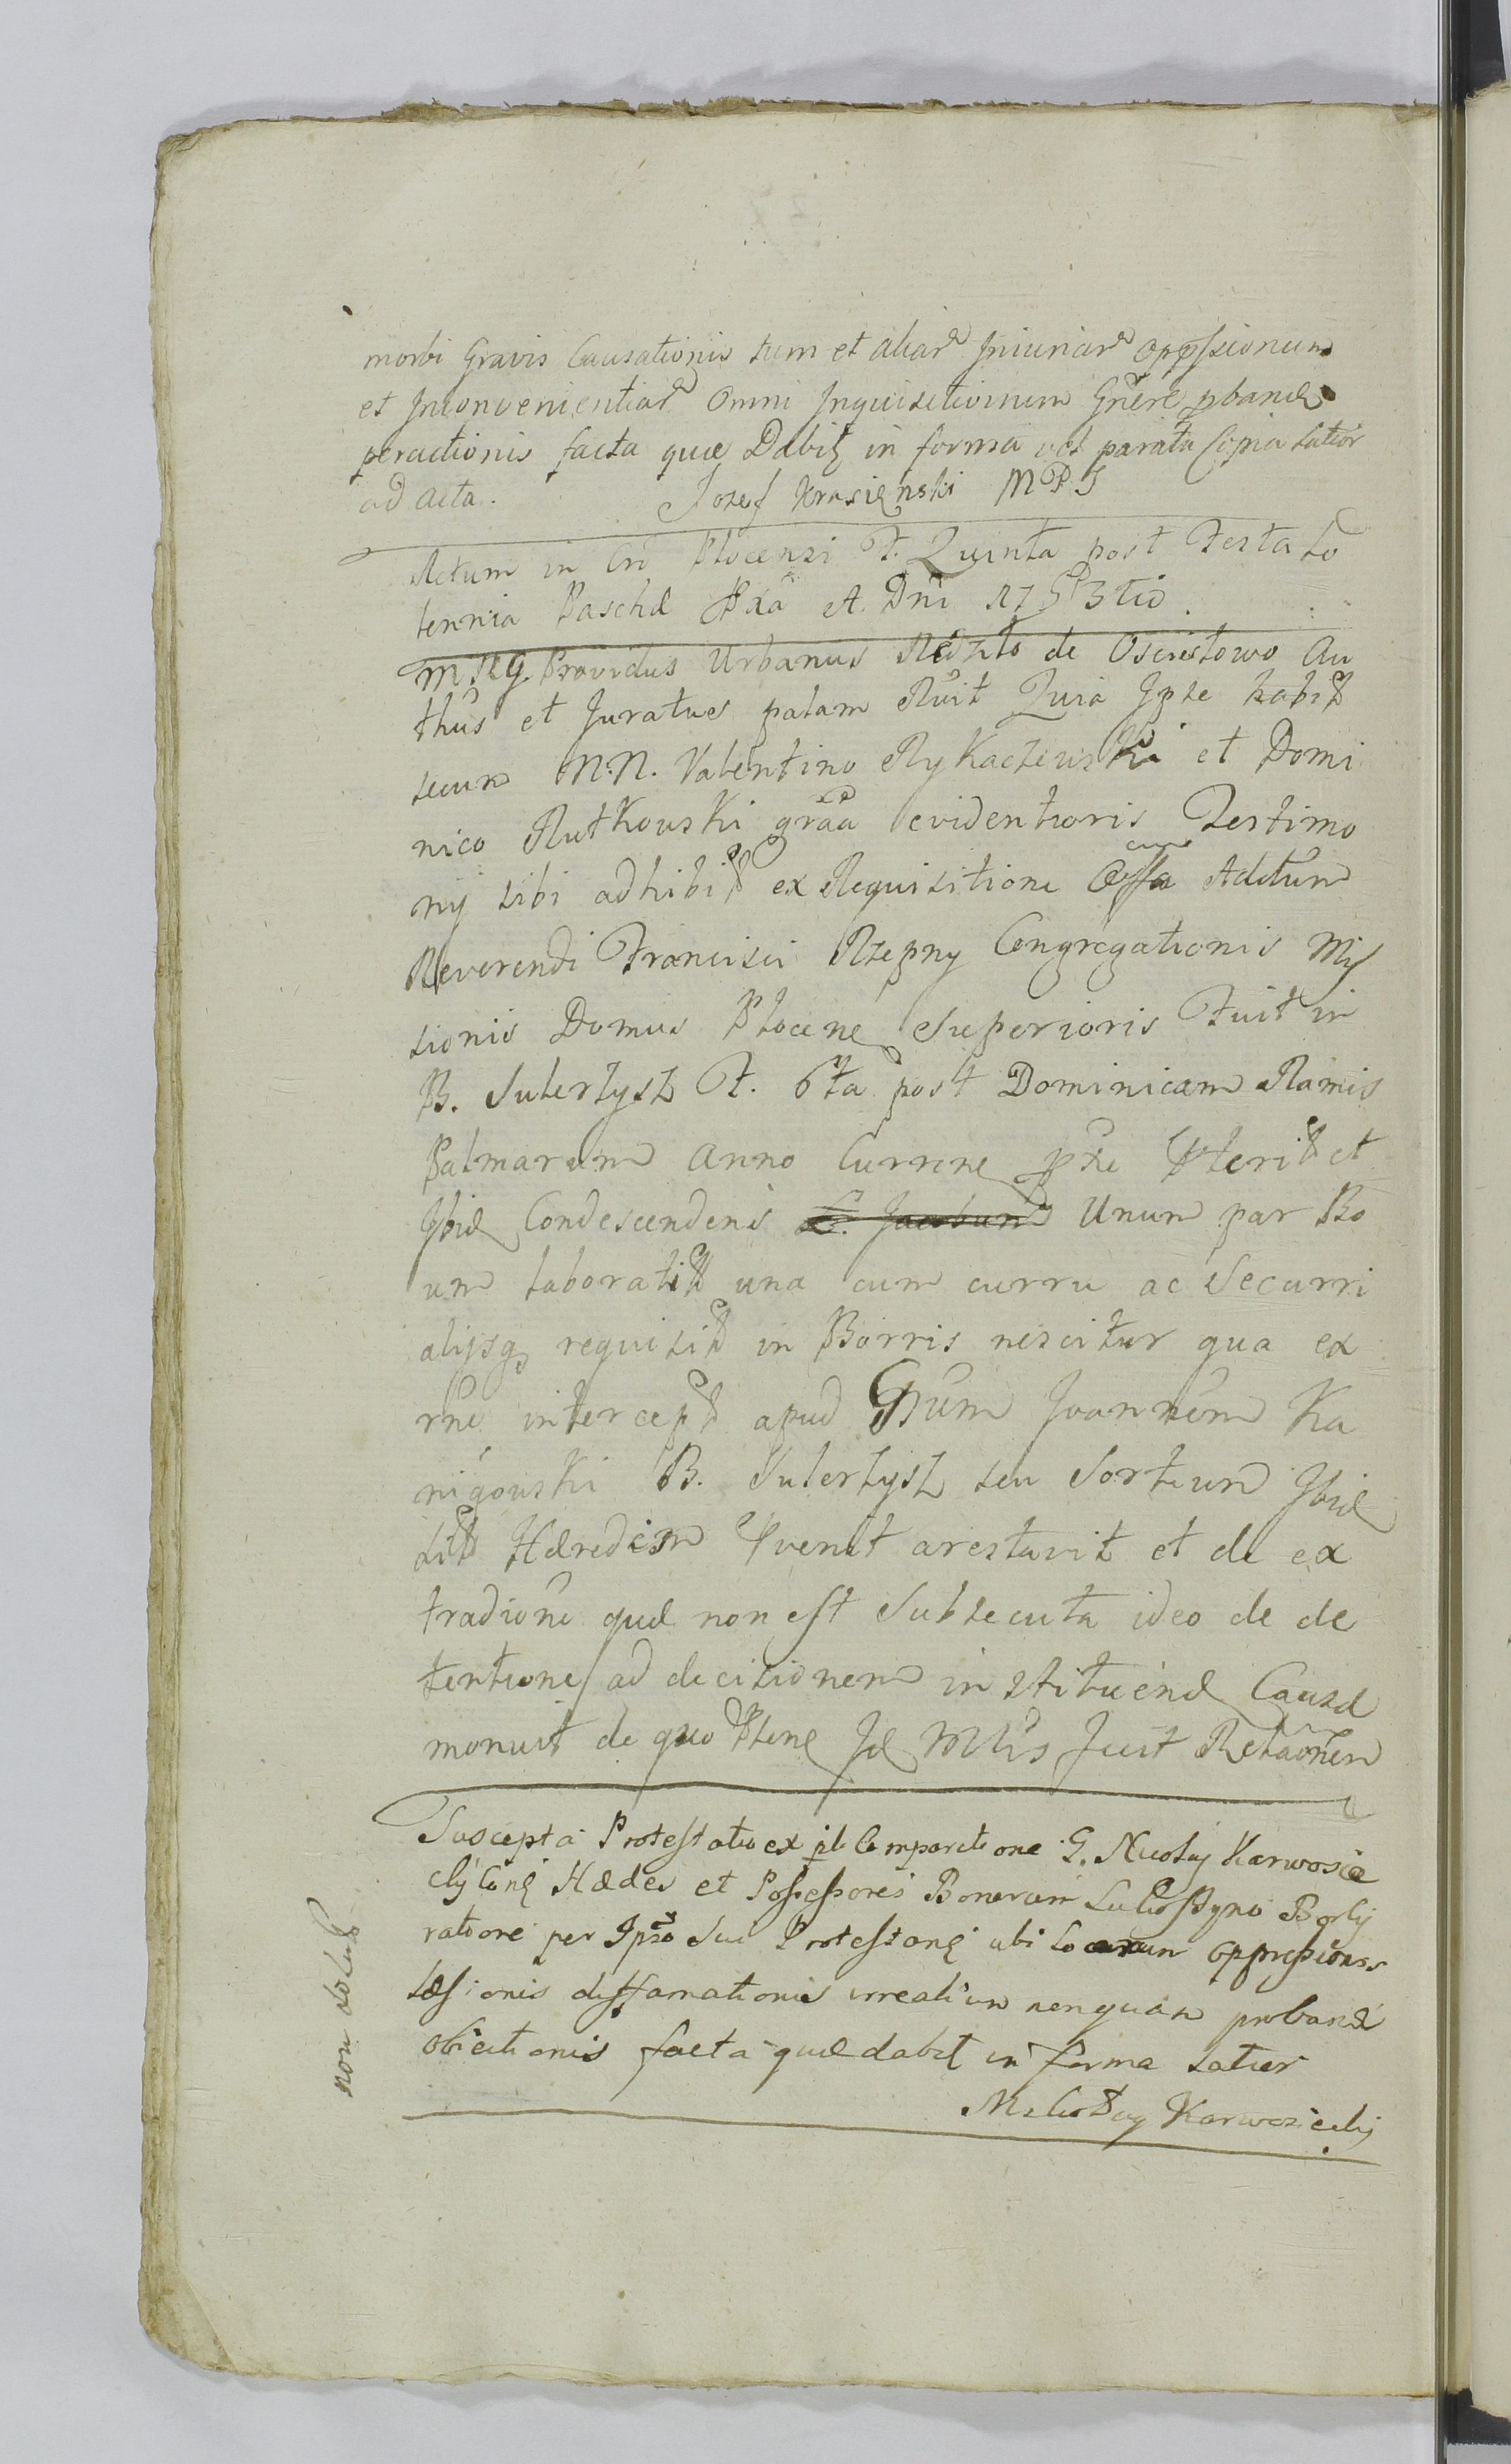 morbi Gravis Causationis tum et aliar Iniuriar oppssionum
et Inconvenientiar Omni Inquisitionum Gnere pband
peractionis facta quæ Dabit in forma vel parata Copia latior
ad acta. Jozef Krasienski MPJ
Actum in Crô Plocensi F. Quinta post Festa So
lennia Paschæ Pxa A. Dni 1753tio.
MRG. Providus Urbanus de Osiestowo Au
thus et Juratus palam Rūit Quia Ipse habit
secum N.N. Valentino Rykaczewski et Domi
nico Rutkowski grāa evidentioris Testimo
nij sibi adhibit ex Requisitione Offa Actum
Reverendi Francisci Rzepny Congregationis Mis
sionis Domus Plocen Superioris Fuit in
B. Sulerzysz F. 6ta post Dominicam Ramis
Palmarum Anno Curren pxe pterit et
Ibid Condescendens Unum par Bo
um laborati una cum curru ac Securri
alijsq requisit in Borris nescitur qua ex
rne intercept apud Gnum Joannem Ka
nigowski B. Sulerzysz seu Sortium Ibid
sit Hæredem pvenit arestavit et de ex
tradione quæ non est Subsecuta ideo de de
tentione ad decisionem instituend Causæ
monuit de quo pten Id Mlis Fuit Retaônem
Suscepta Protestatio ex pte Comparitione G. Nicolay Karwosie
cky Hædes et Possessores Bonorum
ratore per Ipso Sue Protestan ubi locarum oppressionis
læsionis diffamationis irrealium nenquam proband
obiectionis facta quæ dabit in forma latior
Mikolay Karwosiecky
non solut